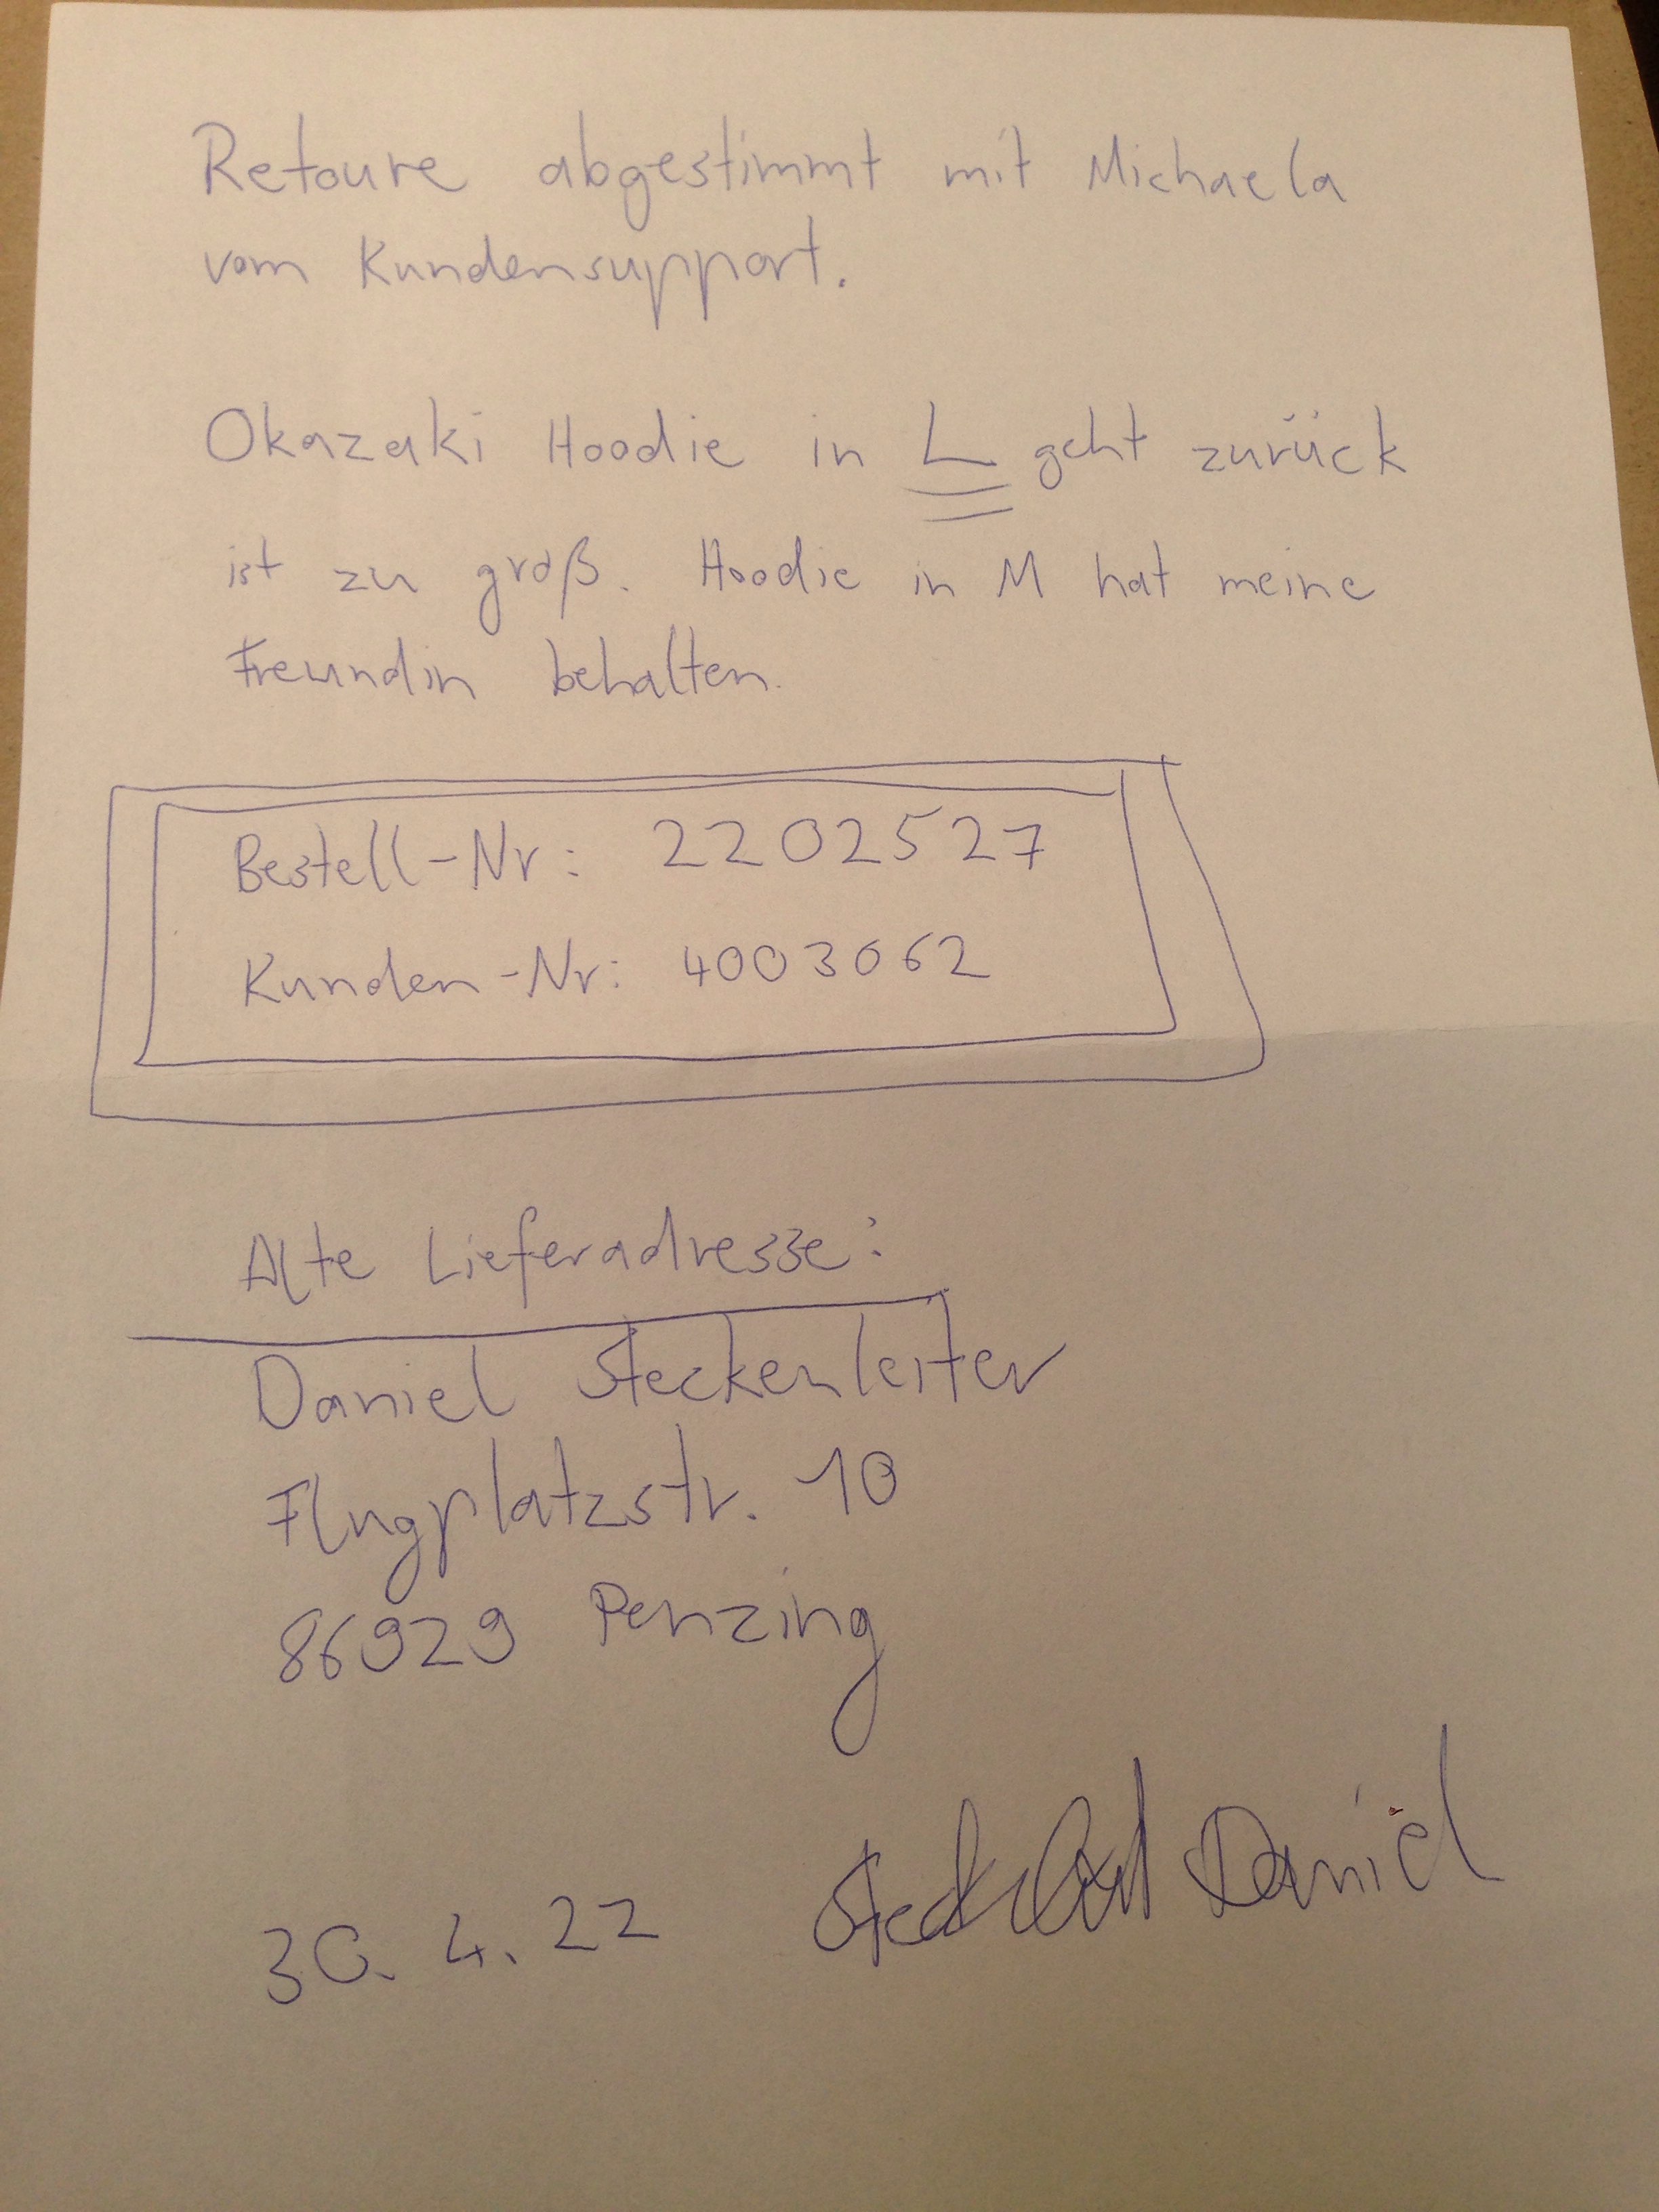 Retoure abgestimmt mit Michaela
vom Kundensupport.
Okazaki Hoodie in L geht zurück
ist zu groß. Hoodie in M hat meine
Freundin behalten.
Bestell-Nr: 2202527
Kunden-Nr: 4003062
Alte Lieferadresse:
Daniel Steckenleiter
Flugplatzstr. 10
86929 Penzing
30. 4. 22 Daniel